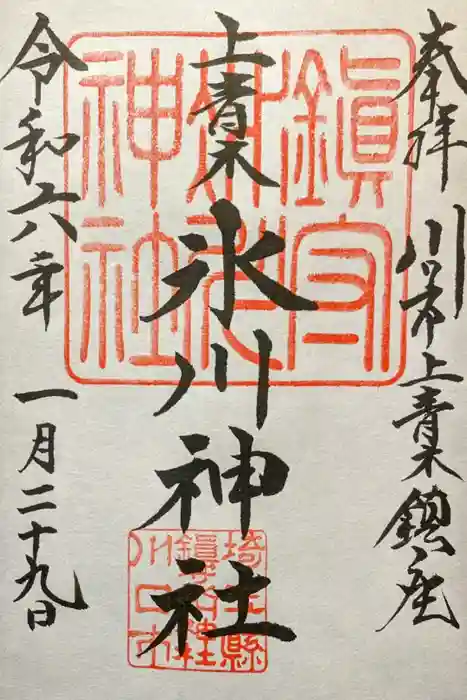 奉拝
川口市上青木鎮座
上青木
氷川神社
令和六年
一月二十九日
鎮守
氷川
神社
埼玉縣
鎮守氷川神社
川口市